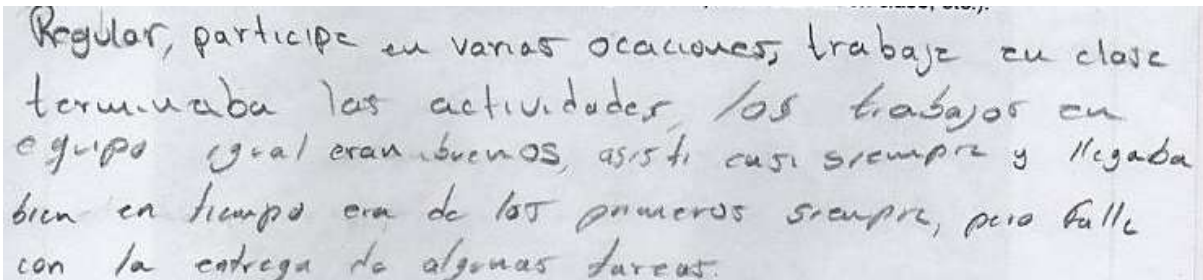 Regular, participe en varias ocaciones, trabaje en clase
terminaba las actividades, los trabajos en
equipo igual eran buenos, asisti casi siempre y llegaba
bien en tiempo era de los primeros siempre, pero falle
con la entrega de algunas tareas.